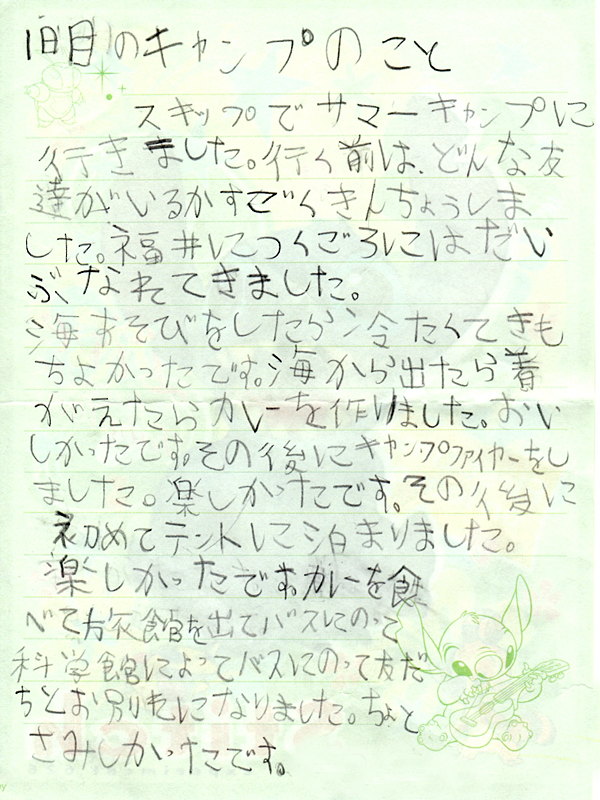 1日目のキャンプのこと
スキップでサマーキャンプに
行きました。行く前は、どんな友
達がいるかすごくきんちょうしま
した。福井につくごろにはだい
ぶなれてきました。
海あそびをしたら冷たくてきも
ちよかったです。海から出たら着
がえたらカレーを作りました。おい
しかったです。その後にキャンプファイヤーをし
ました。楽しかったです。その後に
初めてテントに泊まりました。
楽しかったです。カレーを食
べて旅館を出てバスにのって
科学館によってバスにのって友だ
ちとお別れになりました。ちょと
さみしかったです。